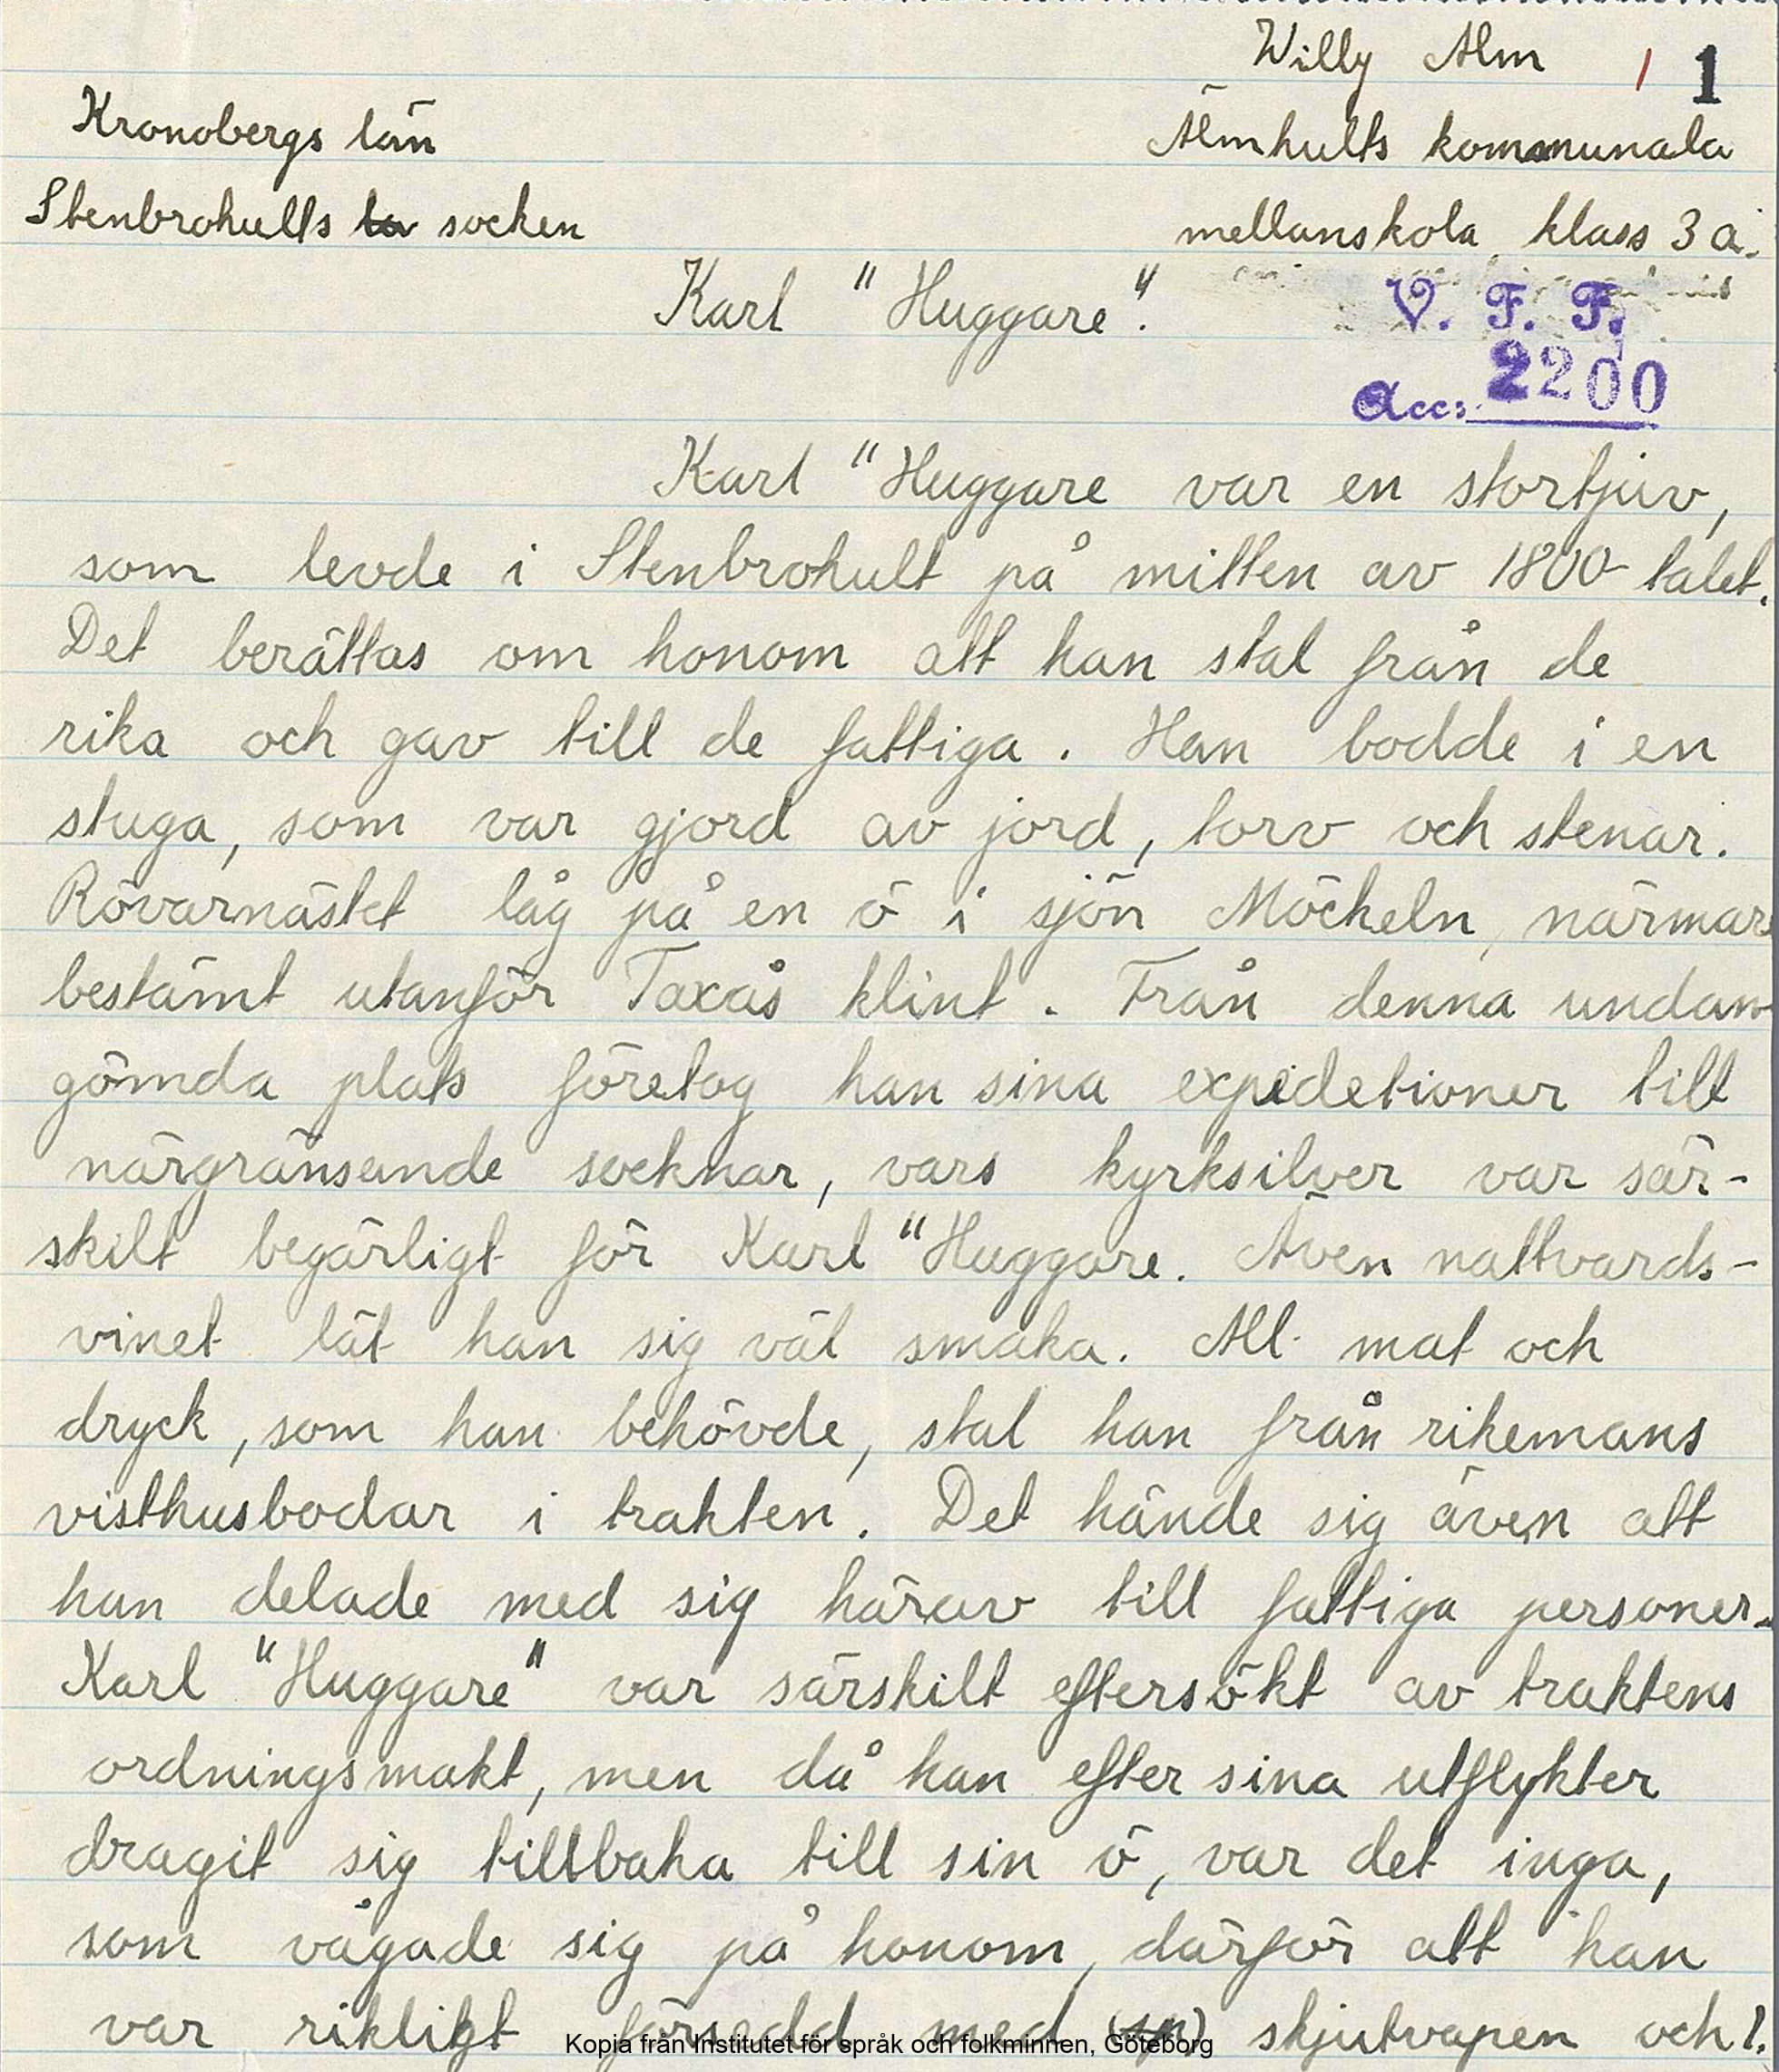 Willy Alm / 1
Kronobergs län
Älmhults kommunala
Stenbrohults la socken
mellanskola klass 3 a.
Karl "Huggare".
V. F. F.
acc: 2200
Karl "Huggare var en stortjuv,
som levde i Stenbrohult på mitten av 1800-talet.
Det berättas om honom att han stal från de
rika och gav till de fattiga. Han bodde i en
stuga, som var gjord av jord, torv och stenar.
Rövarnästet låg på en ö i sjön Möckeln, närmare
bestämt utanför Taxås klint. Från denna undan-
gömda plats företog han sina expidetioner till
närgränsande socknar, vars kyrksilver var sär-
skilt begärligt för Karl "Huggare. Även nattvards-
vinet lät han sig väl smaka. All mat och
dryck, som han behövde, stal han från rikemans
visthusbodar i trakten. Det hände sig även att
han delade med sig härav till fattiga personer.
Karl "Huggare" var särskilt eftersökt av traktens
ordningsmakt, men då han efter sina utflykter
dragit sig tillbaka till sin ö, var det inga,
som vågade sig på honom, därför att han
var rikligt försedd med (sp) skjutvapen och!.
Kopia från Institutet för språk och folkminnen, Göteborg